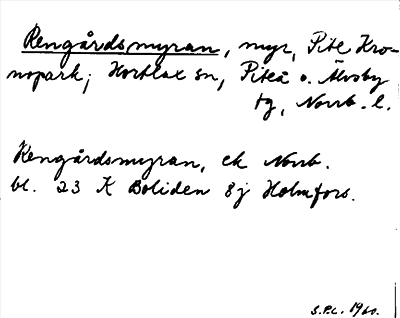 Rengårdsmyran, myr, Pite Kro-
nopark; Hortlax sn, Piteå o. Älvsby
tg, Norrb. l.
Rengårdsmyran, ek Norrb.
bl. 23 K Boliden 8j Holmfors.
S.P.L. 1960.